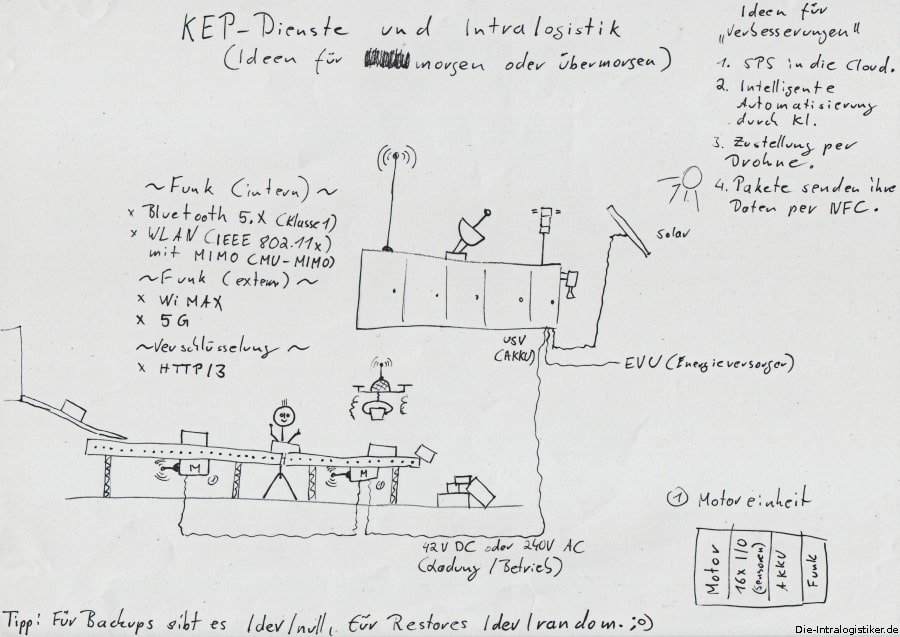 KEP-Dienste und Intralogistik
(Ideen für morgen oder übermorgen)
Ideen für
„Verbesserungen"
1. SPS in die Cloud.
2. Intelligente
Automatisierung
durch KI.
3. Zustellung per
Drohne.
4. Pakete senden ihre
Daten per NFC.
~Funk (intern)~
x Bluetooth 5.X (Klasse 1)
x WLAN (IEEE 802.11x)
mit MIMO (MU-MIMO)
~Funk (extern)~
x WiMAX
x 5G
~Verschlüsselung~
x HTTP/3
solar
USV
(AKKU)
EVU (Energieversorger)
M
1
M
1
42V DC oder 240V AC
(Ladung/Betrieb)
1 Motoreinheit
Motor
16x I/O
(Sensoren)
AKKU
Funk
Tipp: Für Backups gibt es /dev/null, für Restores /dev/random. ;o)
Die-Intralogistiker.de